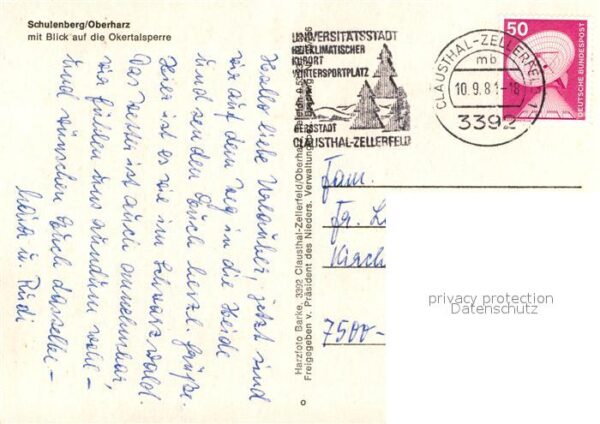 Schulenberg/Oberharz
mit Blick auf die Okertalsperre
Hallo liebe Urlauber, jetzt sind
wir auf dem Weg in die Heide
und senden Euch herzl. Grüße.
Hier ist es wie im Schwarzwald.
Das Wetter ist auch annehmbar,
wir fühlen uns rundum wohl –
und wünschen Euch dasselbe –
u. Rudi
Harzfoto Barke, 3392 Clausthal-Zellerfeld/Oberharz
Freigegeben v. Präsident des Nieders. Verwaltungs
UNIVERSITÄTSSTADT
HEILKLIMATISCHER
KURORT
WINTERSPORTPLATZ
BERGSTADT
CLAUSTHAL-ZELLERFELD
CLAUSTHAL-ZELLERFELD 1
mb
10.9.81-18
3392
50
DEUTSCHE BUNDESPOST
Fam.
Fr. L
Kirch
7500-
privacy protection
Datenschutz